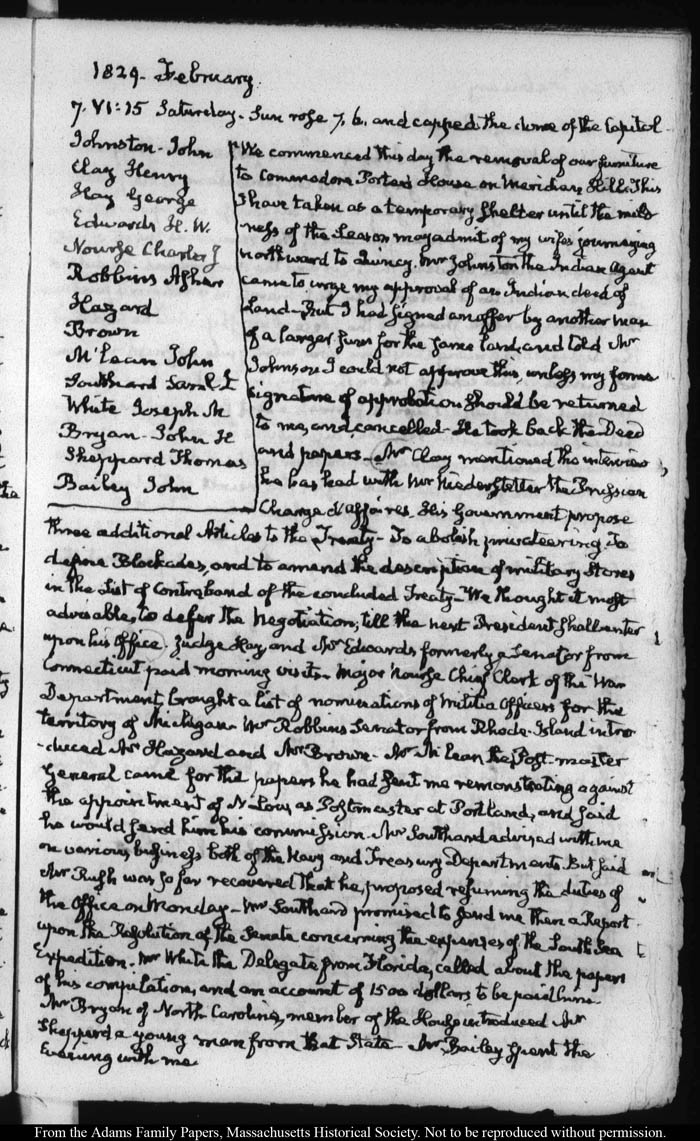 1829. February.
7. VI:15 Saturday. Sun rose 7. 6. and capped the dome of the Capitol
Johnston - John
Clay Henry
Hay George
Edwards H. W.
Nourse Charles J
Robbins Asher
Hazard
Brown
McLean John
Southard Saml. L
White Joseph M
Bryan - John H
Sheppard Thomas
Bailey John
We commenced this day the removal of our furniture
to Commodore Porter's House on Meridian Hill. This
I have taken as a temporary shelter until the mild-
ness of the Season may admit of my wife's journeying
northward to Quincy. Mr Johnston the Indian Agent
came to urge my approval of an Indian deed of
Land - But I had signed an offer by another man
of a larger sum for the same land, and told Mr
Johnson I could not approve this, unless my former
signature of approbation should be returned
to me, and cancelled - He took back the Deed
and papers - Mr Clay mentioned the interview
he has had with Mr Niederstetter the Prussian
Chargé d'affaires. His Government propose
three additional Articles to the Treaty - To abolish privateering To
define Blockades, and to amend the description of military Stores
in the List of Contraband of the concluded Treaty - We thought it most
advisable, to defer the Negotiation, till the next President shall enter
upon his Office. Judge Hay and Mr Edwards formerly a Senator from
Connecticut paid morning visits - Major Nourse Chief Clerk of the War
Department brought a list of nominations of Militia Officers for the
territory of Michigan - Mr Robbins Senator from Rhode-Island intro
-duced Mr Hazard and Mr Brown - Mr McLean the Post-master
General came for the papers he had sent me remonstrating against
the appointment of N. Low, as Postmaster at Portland, and said
he would send him his commission. Mr Southard advised with me
on various business both of the Navy and Treasury Departments. But said
Mr Rush was so far recovered that he proposed resuming the duties of
the Office on Monday - Mr Southard promised to send me then a Report
upon the Resolution of the Senate concerning the expenses of the South Sea
Expedition. Mr White the Delegate from Florida, called about the papers
of his compilation, and an account of 1500 dollars to be paid him.
Mr Bryan of North Carolina, member of the House introduced Mr
Sheppard a young man from that State - Mr Bailey spent the
Evening with me
From the Adams Family Papers, Massachusetts Historical Society. Not to be reproduced without permission.